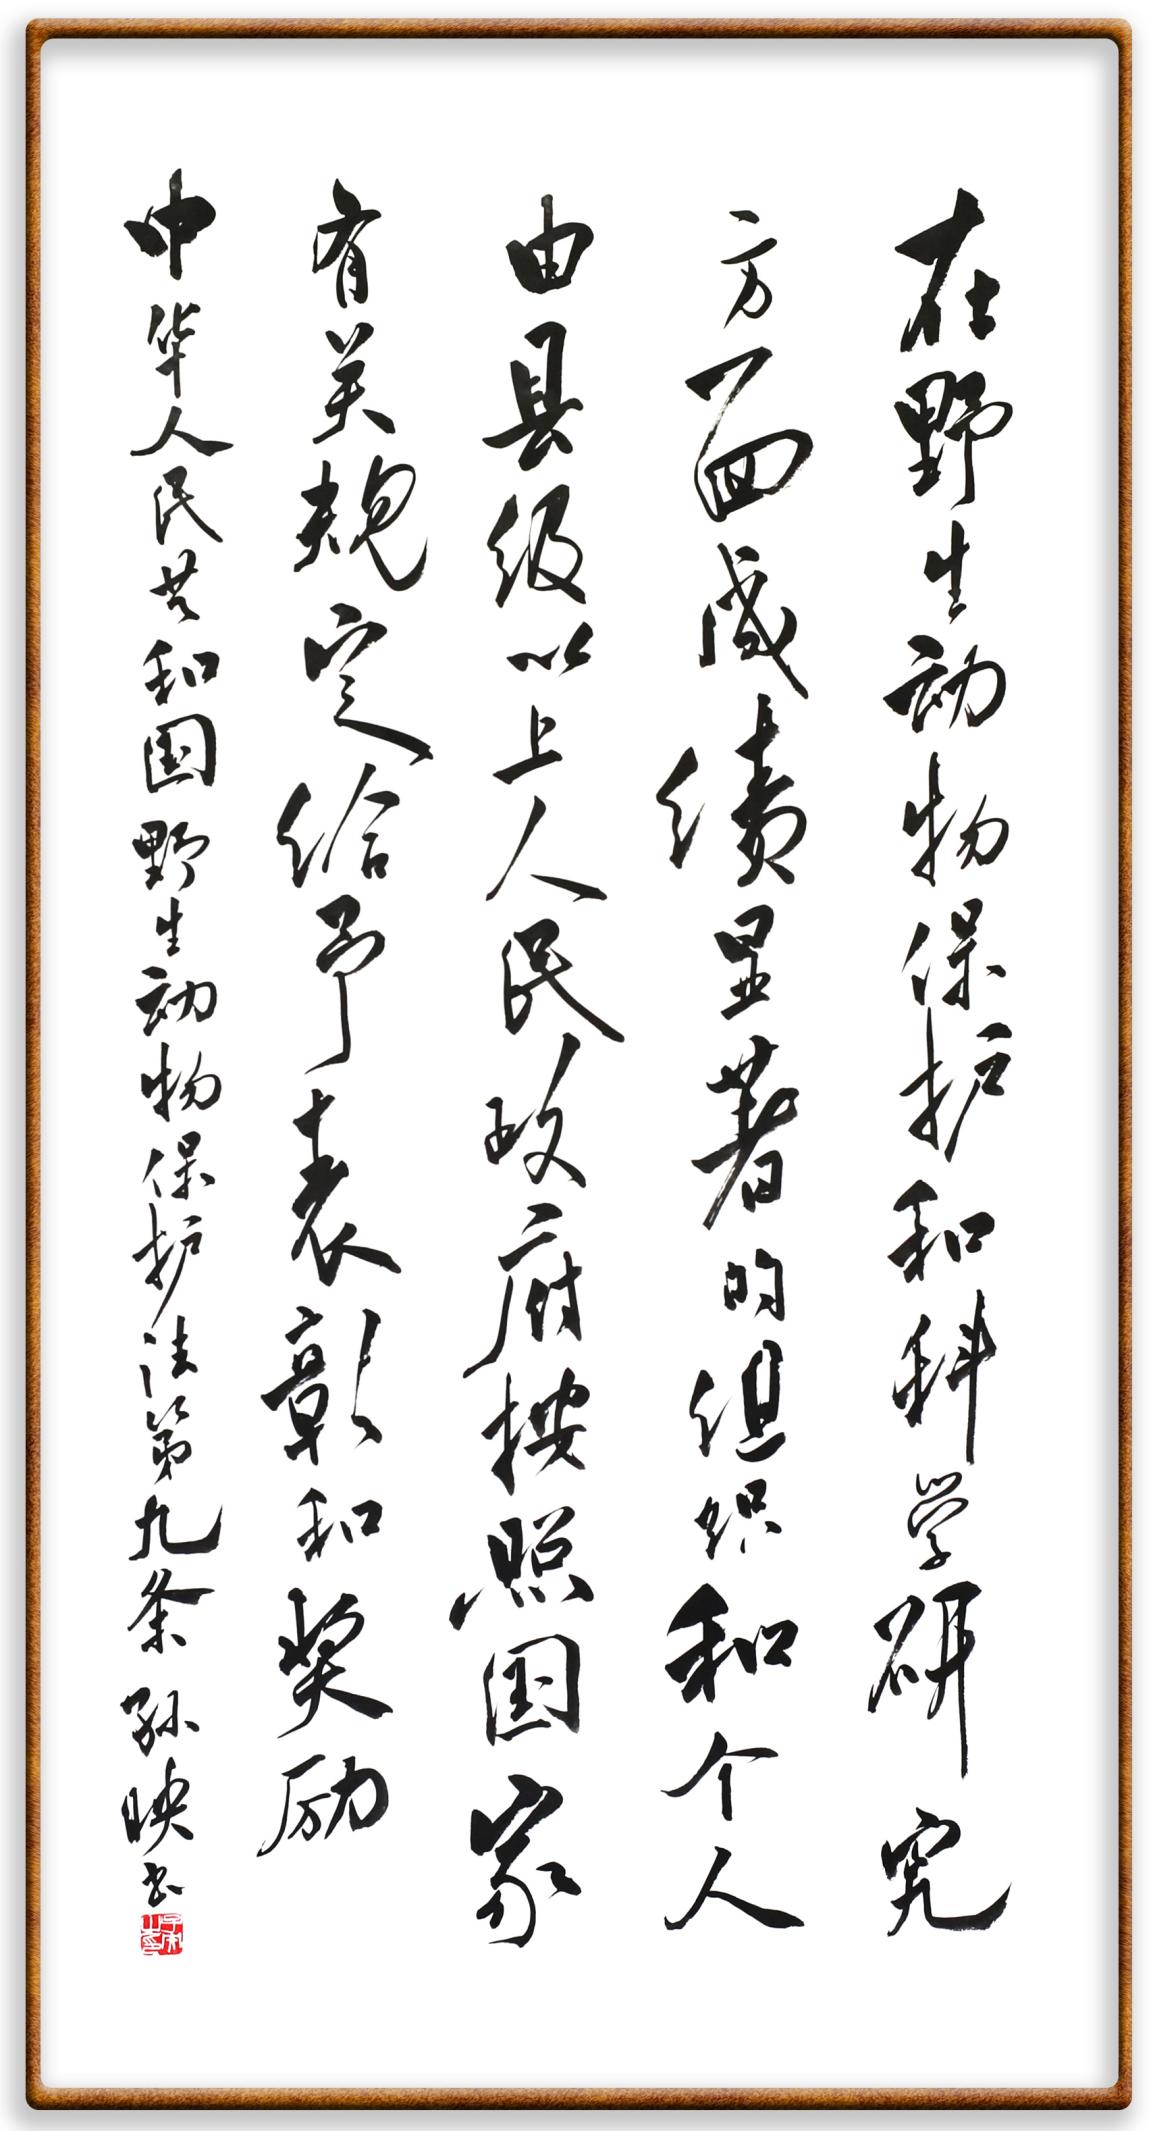 在野生动物保护和科学研究
方面成绩显著的组织和个人
由县级以上人民政府按照国家
有关规定给予表彰和奖励
中华人民共和国野生动物保护法第九条 孙映书